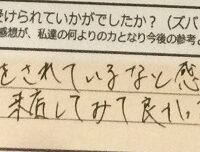 受けられていかがでしたか？（ズバ
感想が、私達の何よりの力となり今後の参考と
をされているなと感
来店してみて良かっ